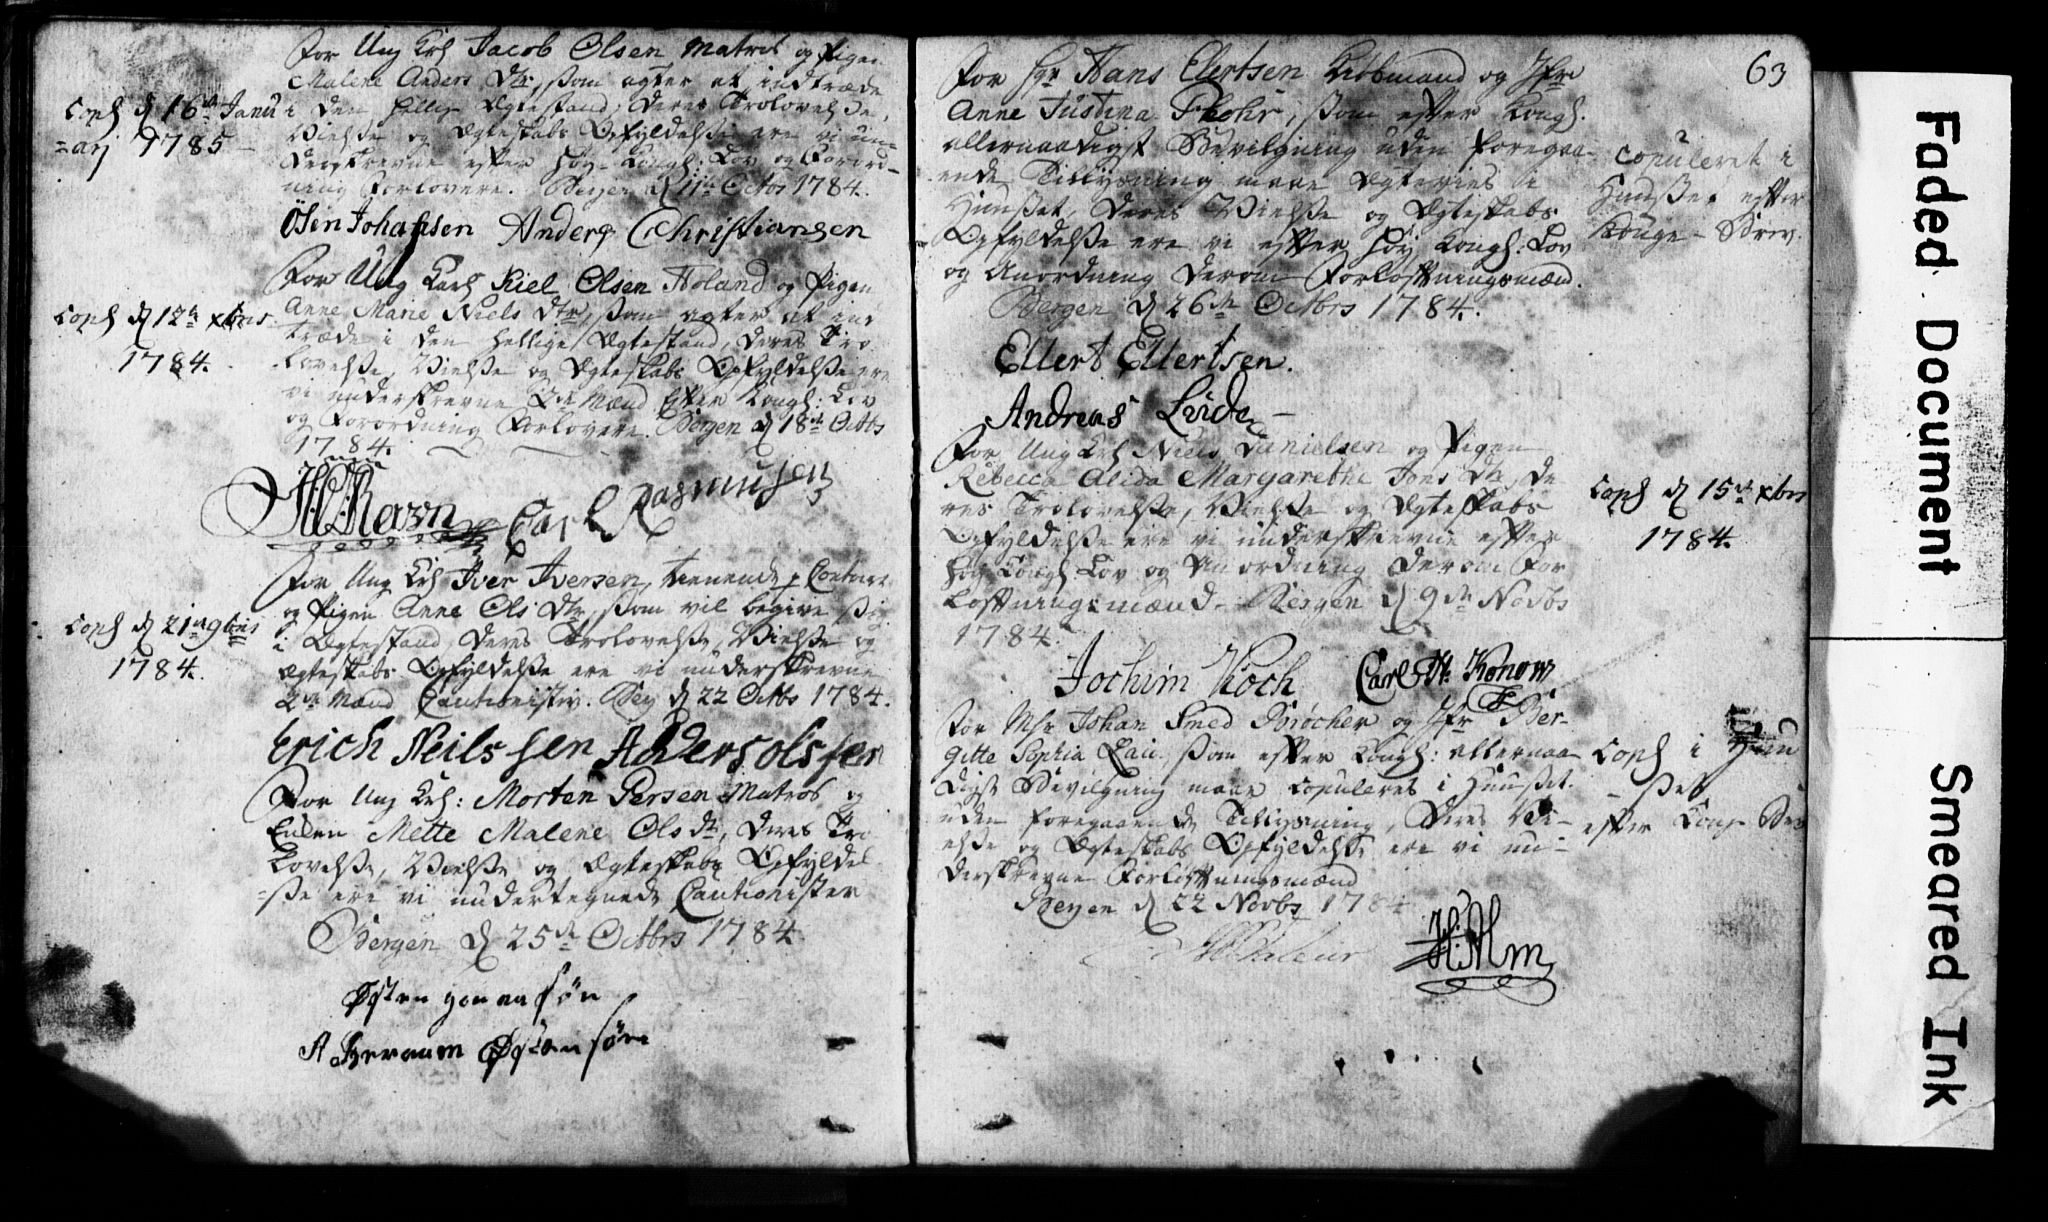 For Ung Krl Jacob Olsen Matros og Pigen
Malene Anders Dtr, som agter at indtræde
i den hellig Ægtestand, deres Trolovelse,
Vielse og Ægteskabs Opfyldelse ere vi un-
derskrevne efter høy Kongl: Lov og Forord-
ning Forlovere. Bergen d 11te Octbr 1784.
Coph d 16de Janu
=arj 1785
Osin Johansen Anders Christiansen
For Ung Karl Kiel Olsen Holand og Pigen
Anne Marie Niels Dtr, som agter at ind
træde i den hellige Ægtestand, deres Tro
lovelse, Vielse og Ægteskabs Opfyldelse ere
vi underskrevne 2de Mænd efter Kongl: Lov
og Forordning Forlovere. Bergen d 18de Octbs
1784.
Coph d 12te xbris
1784.
Ravn Carl Rasmusen
For Ung Krl Iver Iversen, tienende
og Pigen Anne Ols Dtr, som vil begive sig
i Ægtestand, deres Trolovelse, Vielse og
Ægteskabs Opfyldelse ere vi underskrevne
2de Mænd Cautionister. Berg d 22 Octbs 1784.
Coph d 21de 9bris
1784.
Erich Neilssen Anders olssen
For Ung Krl: Morten Persen Matros og
Enken Mette Malene Ols dtr, deres Tro
lovelse, Vielse og Ægteskabs Opfyldel
=se ere vi undertegnede Cautionister
Bergen d 25de Octbrs 1784.
Østen
63
For Hr Hans Elertsen Kiøbmand og Jfr
Anne Justina, som efter Kongl.
allernaadigst Bevilgning uden foregaa-
ende Tillysning maae Ægtevies i
Huuset, deres Vielse og Ægteskabs
Opfyldelse ere vi efter høy Kongl: Lov
og Anordning derom Forlovtningsmænd.
Bergen d 26de Octbrs 1784.
Copuleret i
Huuset efter
Konge-Brev.
Ellert Ellertsen.
Andreas
For Ung Krl Niels Danielsen og Pigen
Rebecca Alida Margarethe Jons Dtr, de
res Trolovelse, Vielse og Ægteskabs
Opfyldelse ere vi underskrevne efter
høy Kongl: Lov og Anordning derom For
lovtningsmænd. Bergen d 9de Novbs
1784.
Coph d 15de xbris
1784.
Jochim Koch Carl Konow
For Msr Johan Smed og Jfr Ber-
gitte Sophia, som efter Kongl: allernaa
digst Bevilgning maae copuleres i Huuset
uden foregaaende Tillysning, deres Vi-
else og Ægteskabs Opfyldelse ere vi un-
derskrevne Forlovtningsmænd
Bergen d 22 Novbs 1784
Coph i Huu
-set
efter Kong Brev
Faded Document
Smeared Ink